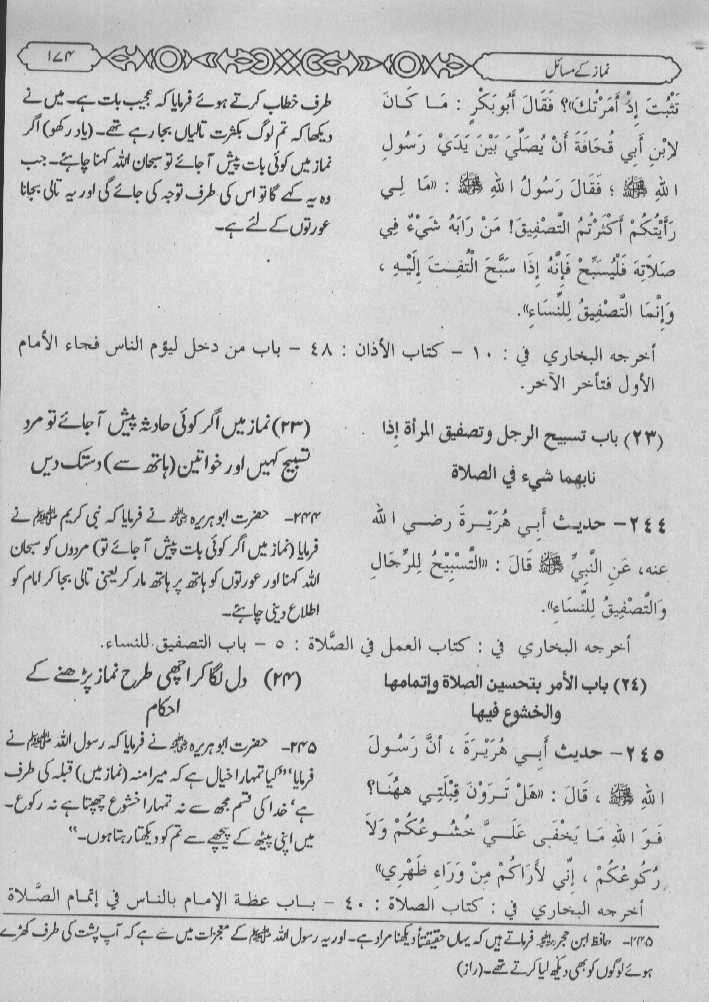 نماز کے مسائل
۱۷۴
تَثْبُتَ إِذْ أَمَرْتُكَ»؟ فَقَالَ أَبُوبَكْرٍ : مَا كَانَ
لِابْنِ أَبِي قُحَافَةَ أَنْ يُصَلِّيَ بَيْنَ يَدَيْ رَسُولِ
اللهِ ﷺ ؛ فَقَالَ رَسُولُ اللهِ ﷺ : «مَا لِي
رَأَيْتُكُمْ أَكْثَرْتُمُ التَّصْفِيقَ! مَنْ رَابَهُ شَيْءٌ فِي
صَلَاتِهِ فَلْيُسَبِّحْ فَإِنَّهُ إِذَا سَبَّحَ الْتُفِتَ إِلَيْهِ ،
وَإِنَّمَا التَّصْفِيقُ لِلنِّسَاءِ».
طرف خطاب کرتے ہوئے فرمایا کہ عجیب بات ہے۔ میں نے
دیکھا کہ تم لوگ بکثرت تالیاں بجا رہے تھے۔ (یاد رکھو) اگر
نماز میں کوئی بات پیش آ جائے تو سبحان اللہ کہنا چاہئے۔ جب
وہ یہ کہے گا تو اس کی طرف توجہ کی جائے گی اور یہ تالی بجانا
عورتوں کے لئے ہے۔
أخرجه البخاري في : ١٠ – كتاب الأذان : ٤٨ – باب من دخل ليؤم الناس فجاء الأمام
الأول فتأخر الآخر.
(٢٣) باب تسبيح الرجل وتصفيق المرأة إذا
نابهما شيء في الصلاة
(۲۳) نماز میں اگر کوئی حادثہ پیش آ جائے تو مرد
تسبیح کہیں اور خواتین (ہاتھ سے) دستک دیں
٢٤٤ – حديث أَبِي هُرَيْرَةَ رضي الله
عنه، عَنِ النَّبِيِّ ﷺ قَالَ : «التَّسْبِيْحُ لِلرِّجَالِ
وَالتَّصْفِيقُ لِلنِّسَاءِ».
۲۴۴۔ حضرت ابو ہریرہ رضی اللہ عنہ نے فرمایا کہ نبی کریم ﷺ نے
فرمایا (نماز میں اگر کوئی بات پیش آ جائے تو) مردوں کو سبحان
اللہ کہنا اور عورتوں کو ہاتھ پر ہاتھ مار کر یعنی تالی بجا کر امام کو
اطلاع دینی چاہئے۔
أخرجه البخاري في : كتاب العمل في الصَّلاة : ٥ – باب التصفيق للنساء.
(٢٤) باب الأمر بتحسين الصلاة وإتمامها
والخشوع فيها
(۲۴) دل لگا کر اچھی طرح نماز پڑھنے کے
احکام
٢٤٥ – حديث أَبِي هُرَيْرَةَ ، أَنَّ رَسُولَ
اللهِ ﷺ ، قَالَ : «هَلْ تَرَوْنَ قِبْلَتِي هٰهُنَا؟
فَوَ اللهِ مَا يَخْفَى عَلَيَّ خُشُوعُكُمْ وَلَا
رُكُوعُكُمْ ، إِنِّي لَأَرَاكُمْ مِنْ وَرَاءِ ظَهْرِي»
۲۴۵۔ حضرت ابو ہریرہ رضی اللہ عنہ نے فرمایا کہ رسول اللہ ﷺ نے
فرمایا ‘‘کیا تمہارا خیال ہے کہ میرا منہ (نماز میں) قبلہ کی طرف
ہے‘ خدا کی قسم مجھ سے نہ تمہارا خشوع چھپتا ہے نہ رکوع۔
میں اپنی پیٹھ کے پیچھے سے تم کو دیکھتا رہتا ہوں۔’’
أخرجه البخاري في : كتاب الصلاة : ٤٠ – باب عظة الإمام بالناس في إتمام الصَّلاة
۲۴۵۔ حافظ ابن حجر رحمہ اللہ فرماتے ہیں کہ یہاں حقیقتاً دیکھنا مراد ہے۔ اور یہ رسول اللہ ﷺ کے معجزات میں سے ہے کہ آپ پشت کی طرف کھڑے
ہوئے لوگوں کو بھی دیکھ لیا کرتے تھے۔ (راز)